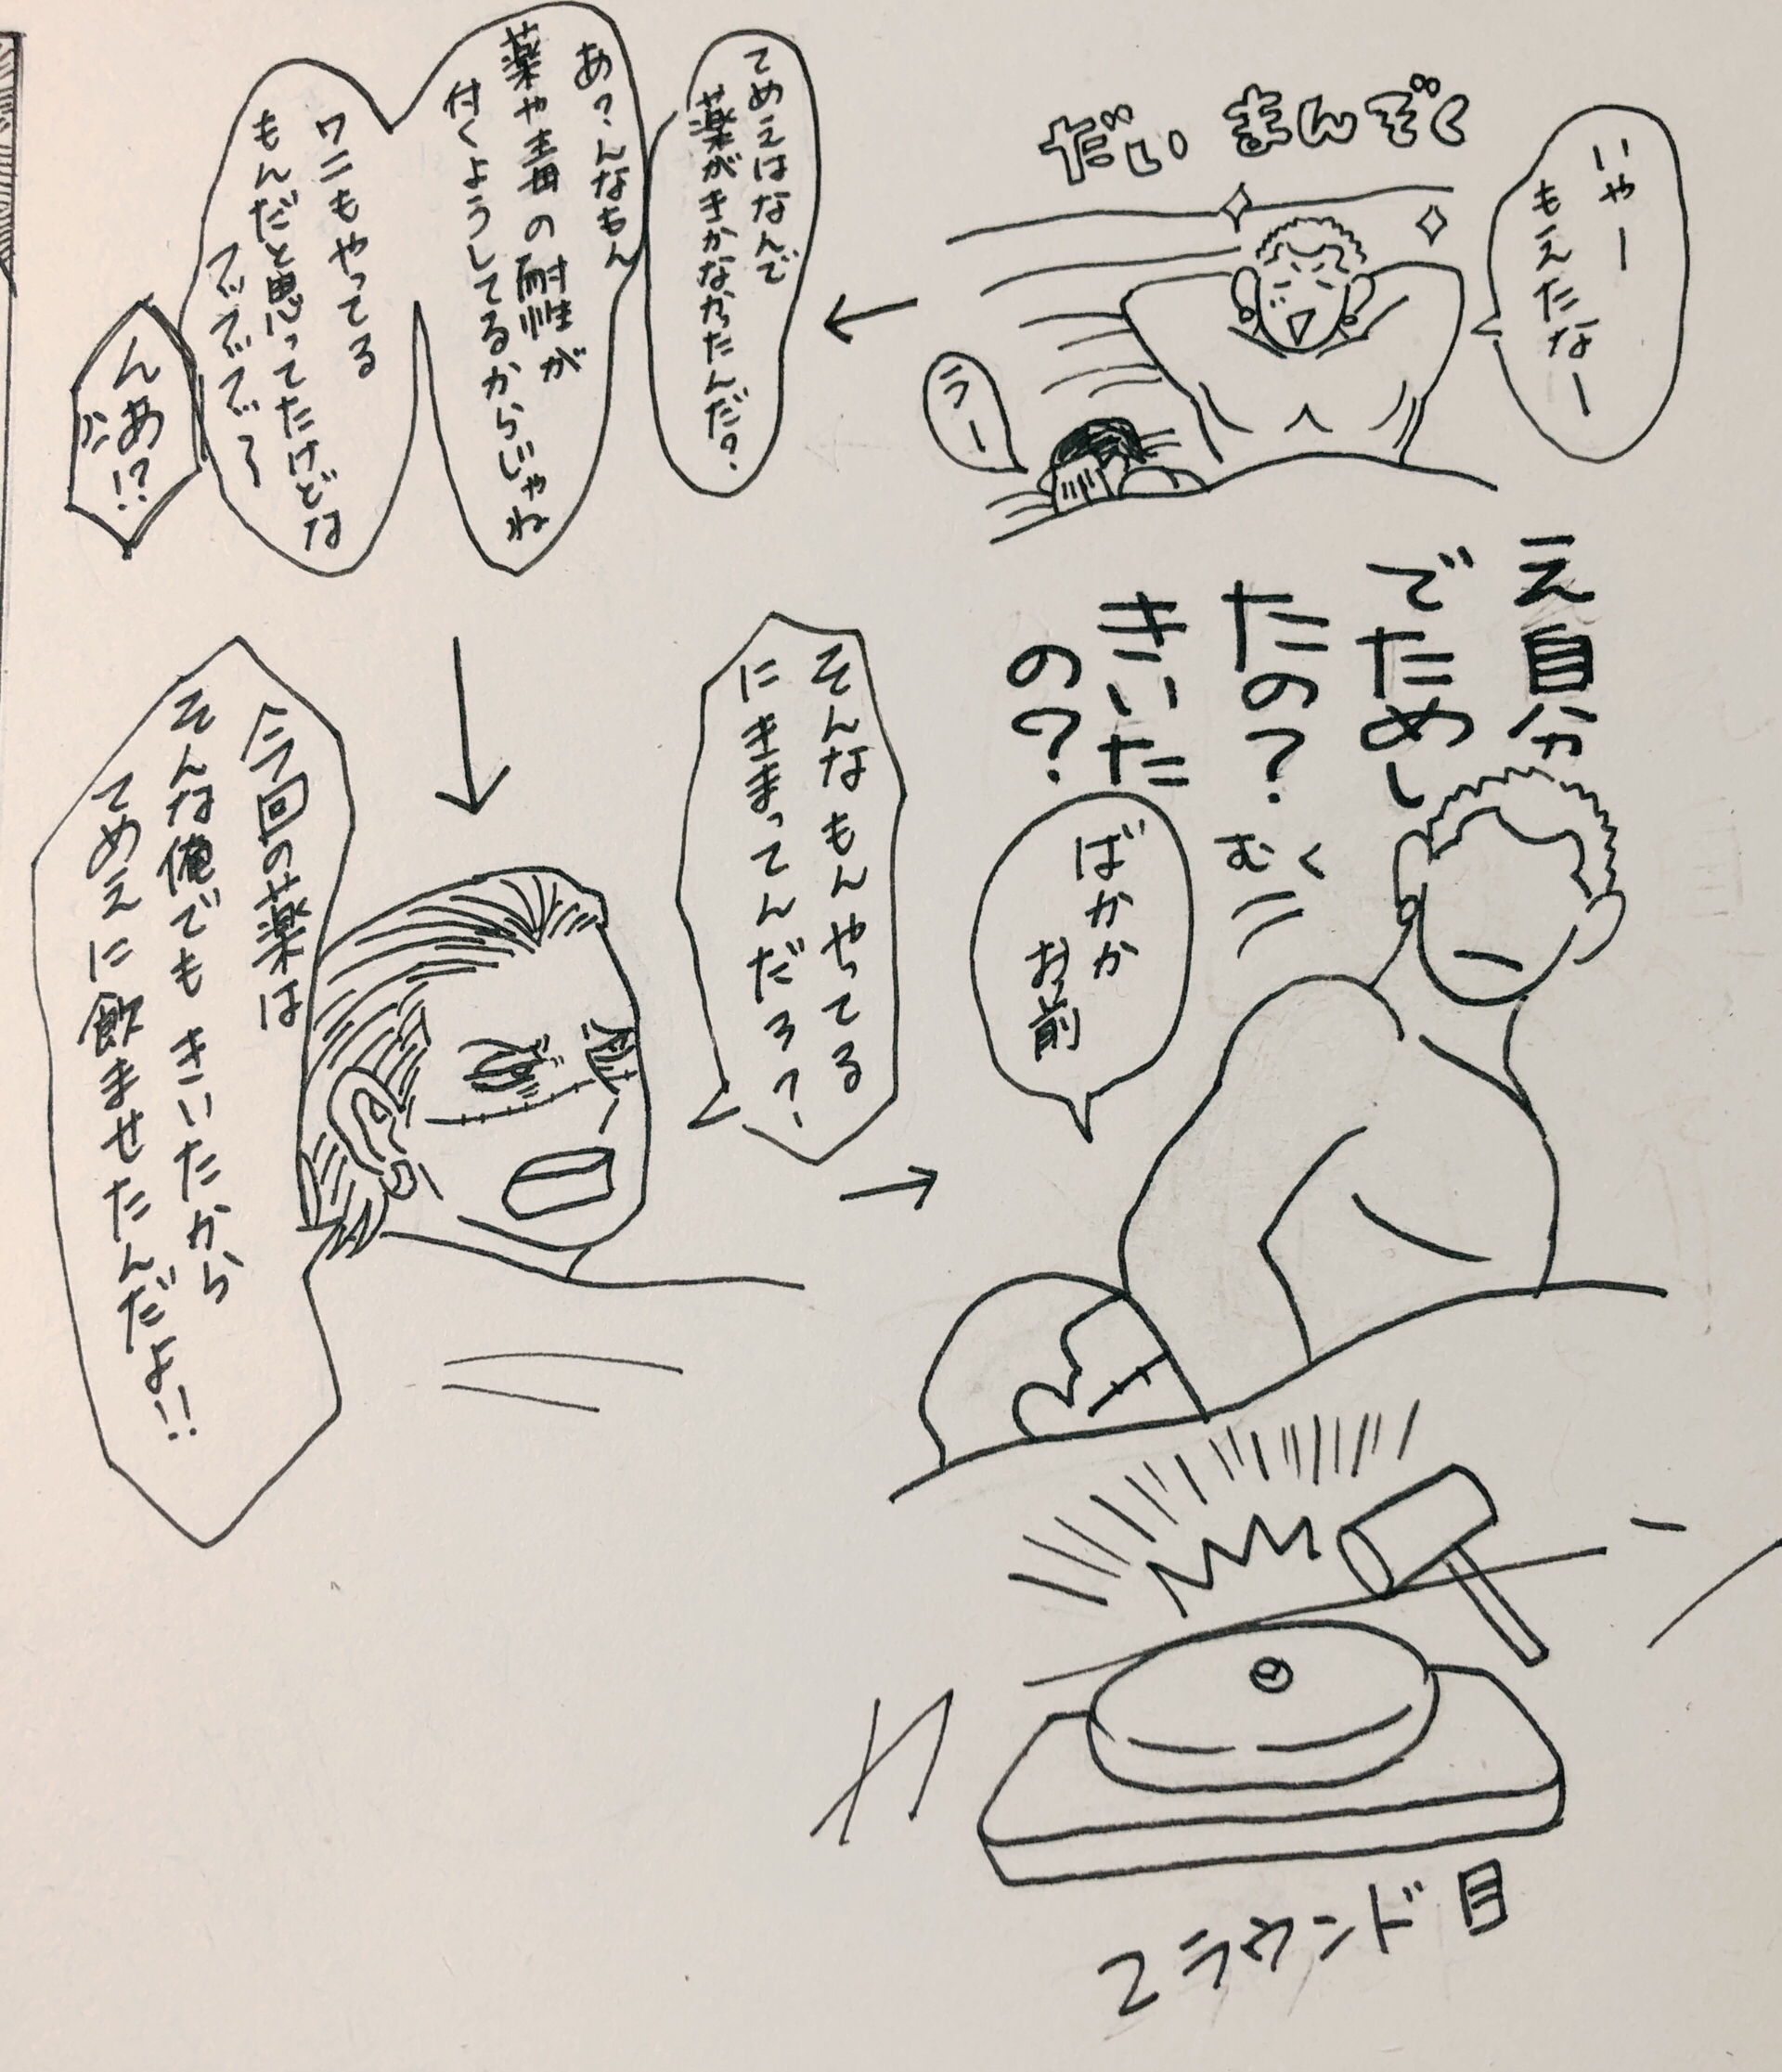 だい まんぞく
いやー
もえたなー
うー
てめえはなんで
薬がきかなかったんだ?
あ?んなもん
薬や毒の耐性が
付くようしてるからじゃね
ワニもやってる
もんだと思ってたけどな
んあ!?
今回の薬は
そんな俺でもきいたから
てめえに飲ませたんだよ!!
そんなもんやってる
にきまってんだろ?
え自分
でためし
たの?
きいた
の?
むく
ばかか
お前
2ラウンド目